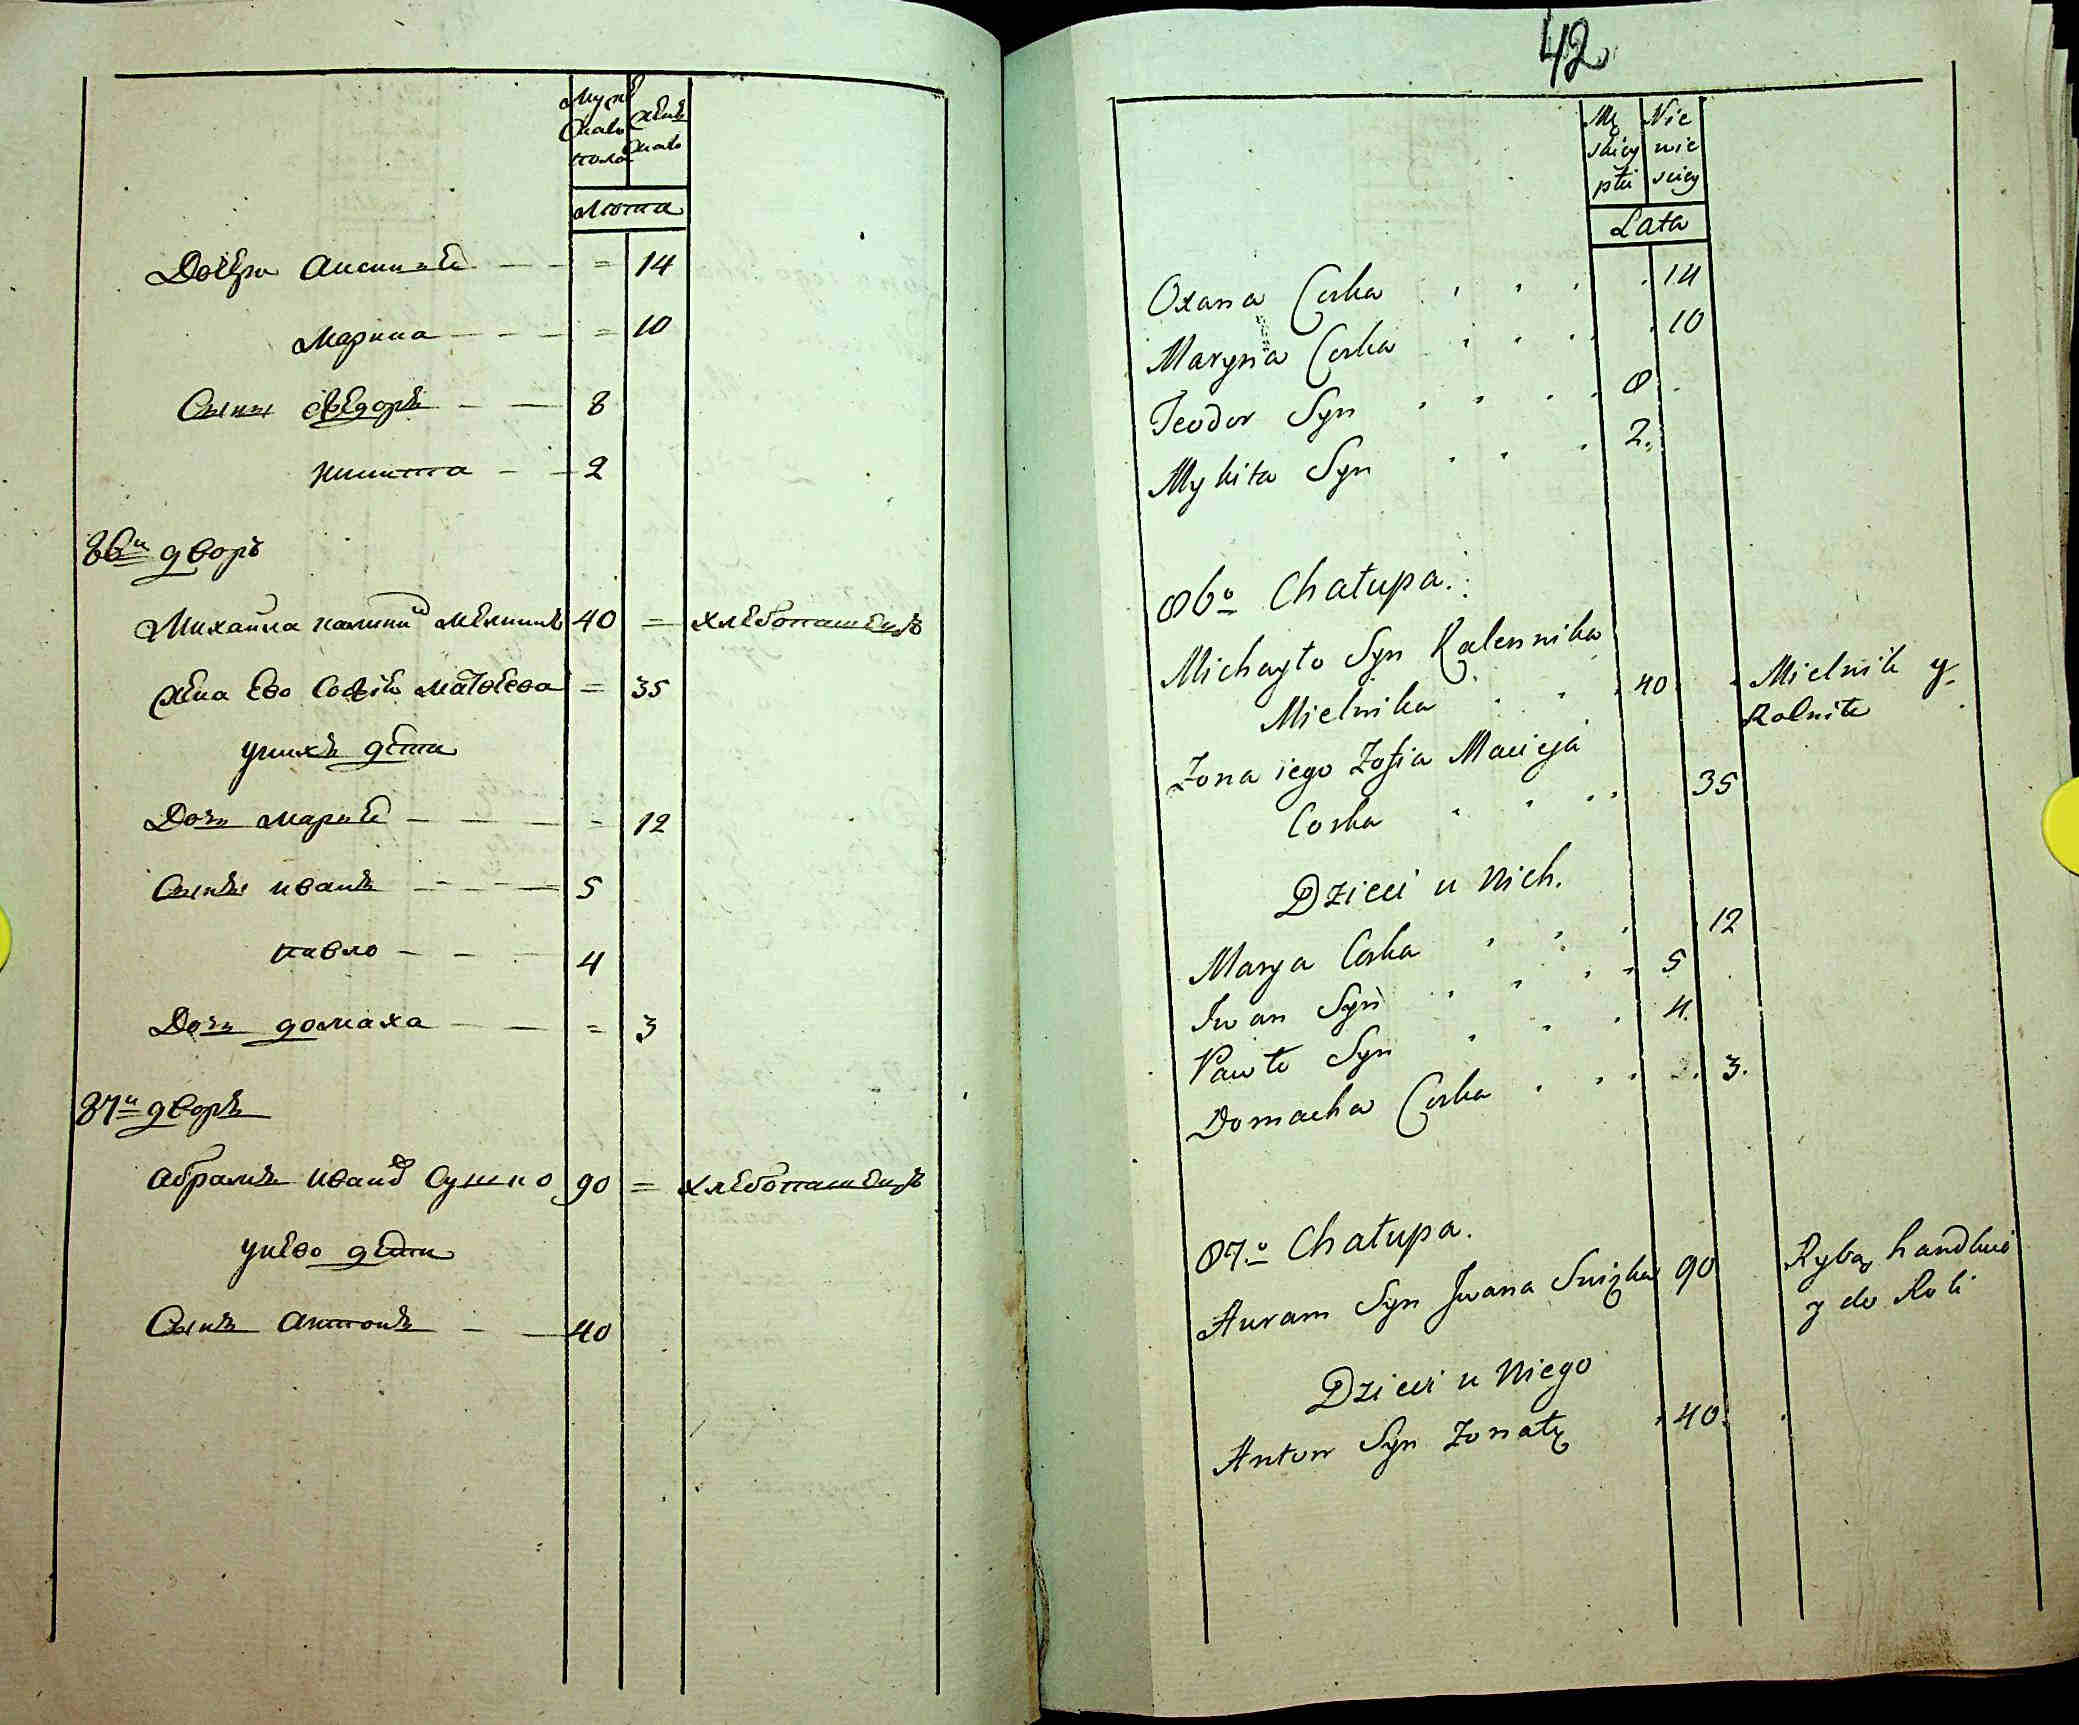 Мужескаго пола
Женскаго
Лѣта
Дочери Аксинія — — = 14
Марина — — — = 10
Сыны Ѳедоръ — — 8
Никита — — 2
86й дворъ
Михайла Калини Мелникъ 40 = хлебопашецъ
Жена Ево Софія Матвеева = 35
у нихъ дети
Дочь Марія — — — = 12
Сыны Иванъ — — — 5
Павло — — — 4
Дочь домаха — — = 3
87й дворъ
Абрамъ Иванов 90 = хлебопашецъ
у нево дети
Сынъ Антонъ — — 40
42
Mę skiey płci
Nie wie sciey
Lata
Oxana Corka 14
Maryna Corka 10
Teodor Syn 8
Mykita Syn 2.
86o Chałupa.
Michayło Syn Kalennika
Mielnika 40 Mielnik y
Rolnik
Zona iego Zofia Macieja
Corka 35
Dzieci u Nich.
Marya Corka 12
Iwan Syn 5
Pawło Syn 4.
Domacha Corka 3.
87o Chałupa.
Auram Syn Iwana 90 Rybą handluie
y do Roli
Dzieci u Niego
Anton Syn Zonaty 40.